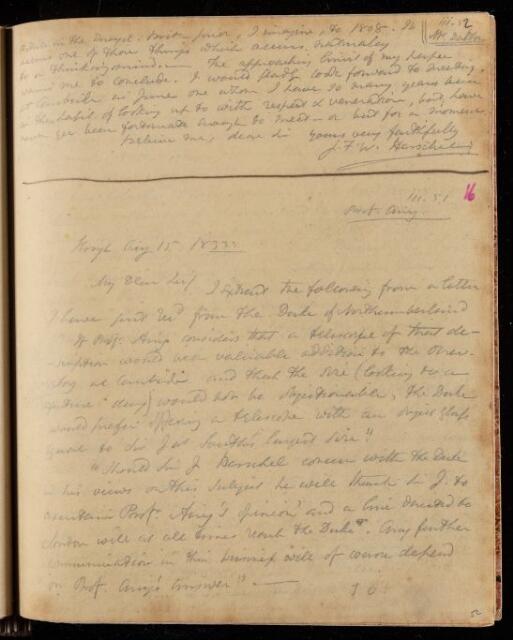 III. 52
Mr. Dalton
in the
seems one of those things which occurs naturally
to a thinking mind. — The approaching limit of my paper
warns me to conclude. I would gladly look forward to meeting,
at Cambridge in June one whom I have so many years been
in the habit of looking up to with respect & veneration, but have
never yet been fortunate enough to meet — or but for a moment
believe me, dear Sir yours very faithfully
J. F. W. Herschel
III. 51
16
Prof. Airy
Slough Aug 15 1833
My Dear Sir I extract the following from a letter
I have just recd from the Duke of Northumberland
"If Profr. Airy considers that a telescope of that de-
scription would be a valuable addition to the Obser-
vatory at Cambridge and that the size (looking to a
future day) would not be objectionable, the Duke
would prefer offering a telescope with an object glass
equal to Sir Jas South's largest size"
"Should Sir J Herschel concur with the Duke
in his views on this subject he will thank Sir J. to
ascertain Profr. Airy's opinion and a line directed to
London will at all times reach the Duke. Any further
communication on this business will of course depend
on Prof. Airy's answer". —
52